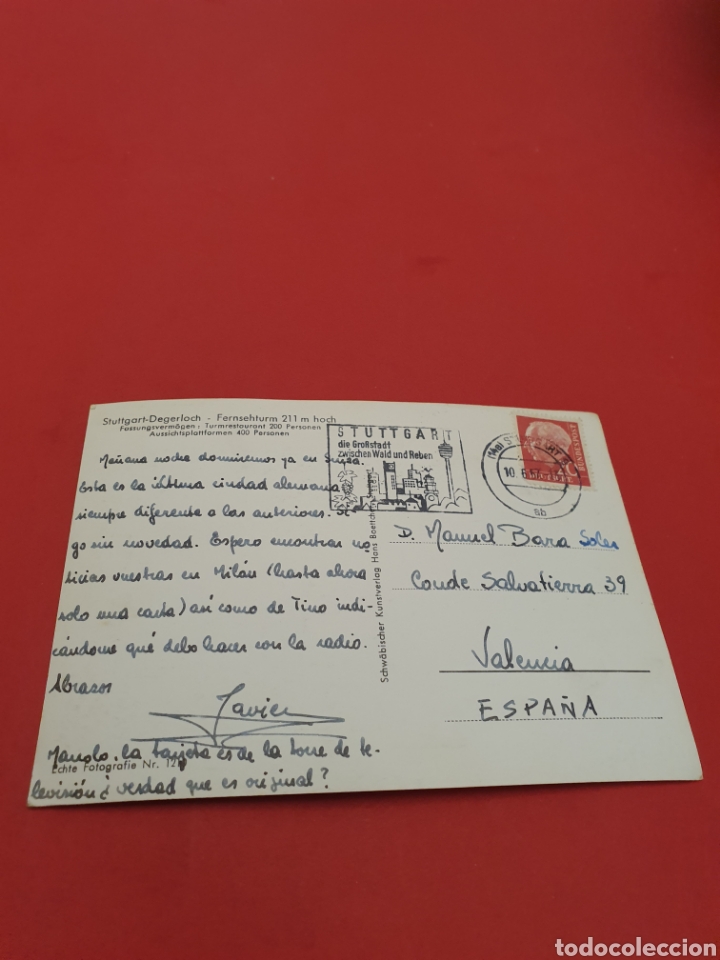 Stuttgart-Degerloch - Fernsehturm 211 m hoch
Fassungsvermögen: Turmrestaurant 200 Personen
Aussichtsplattformen 400 Personen
Mañana noche dormiremos ya en Suiza.
Esta es la última ciudad alemana
siempre diferente a las anteriores. Si-
go sin novedad. Espero encontrar no-
ticias vuestras en Milán (hasta ahora
solo una carta) así como de Tino indi-
cándome qué debo hacer con la radio.
Abrazos
Javier
Manolo, la tarjeta es de la torre de te-
levisión ¿ verdad que es original?
Echte Fotografie Nr.
Schwäbischer Kunstverlag Hans Boettcher
STUTTGART
die Großstadt
zwischen Wald und Reben
10.6.57
sb
DEUTSCHE
BUNDESPOST
D. Manuel Bara Soler
Conde Salvatierra 39
Valencia
ESPAÑA
todocoleccion